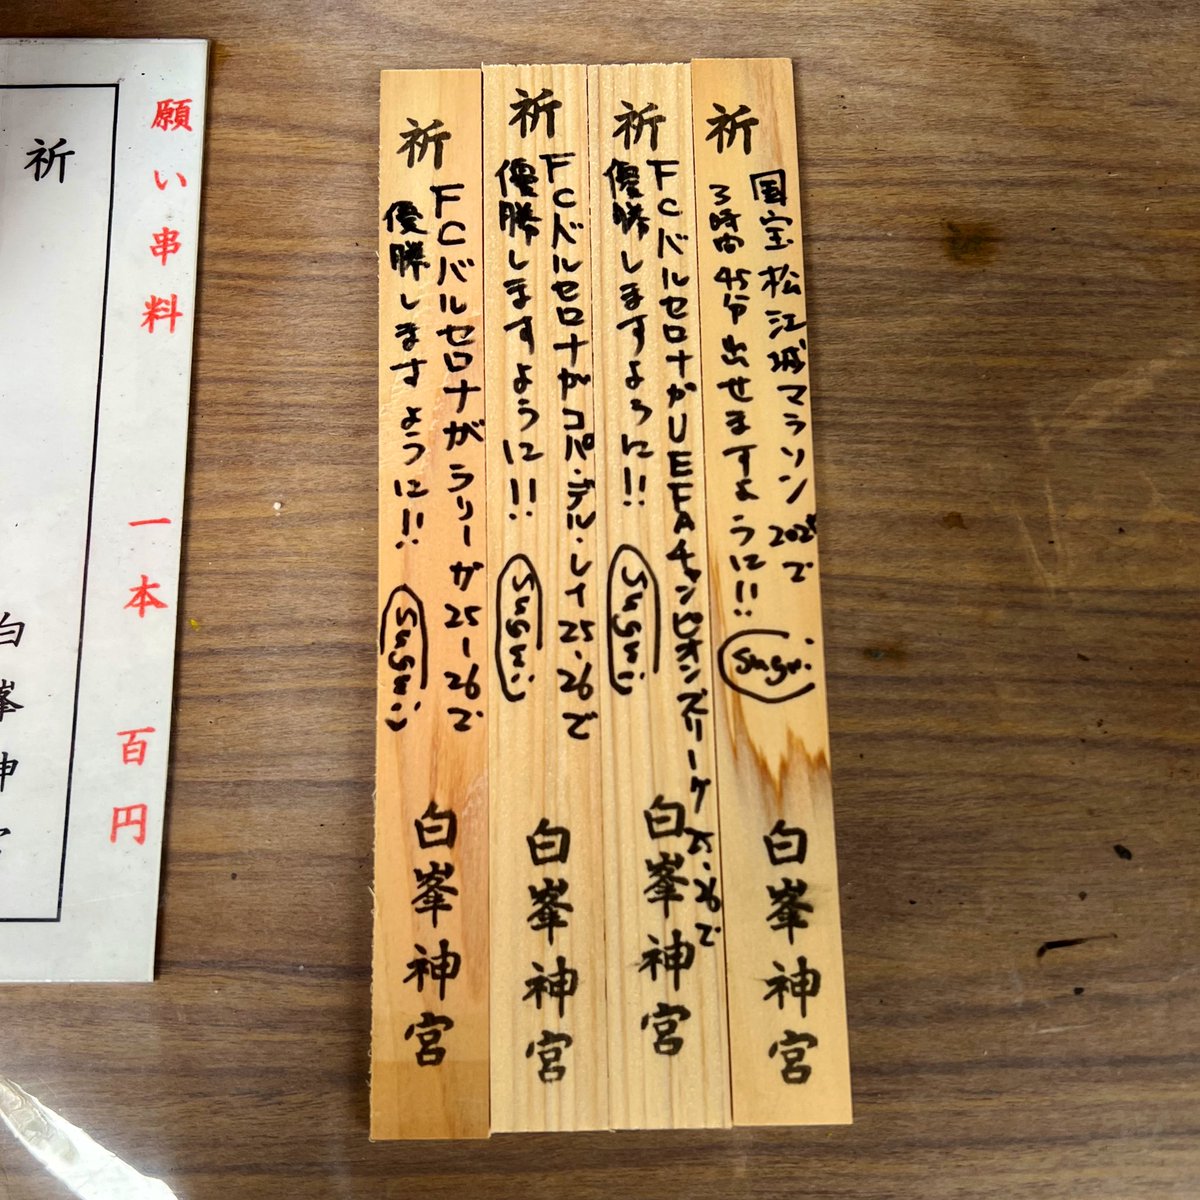 祈
国宝松江城マラソン
で
3時間45分出せますように!!
白峯神宮
祈
FCバルセロナがUEFAチャンピオンズリーグ25-26で
優勝しますように!!
白峯神宮
祈
FCバルセロナがコパ・デル・レイ25-26で
優勝しますように!!
白峯神宮
祈
FCバルセロナがラリーガ25-26で
優勝しますように!!
白峯神宮
願い串料 一本 百円
祈
白峯神宮